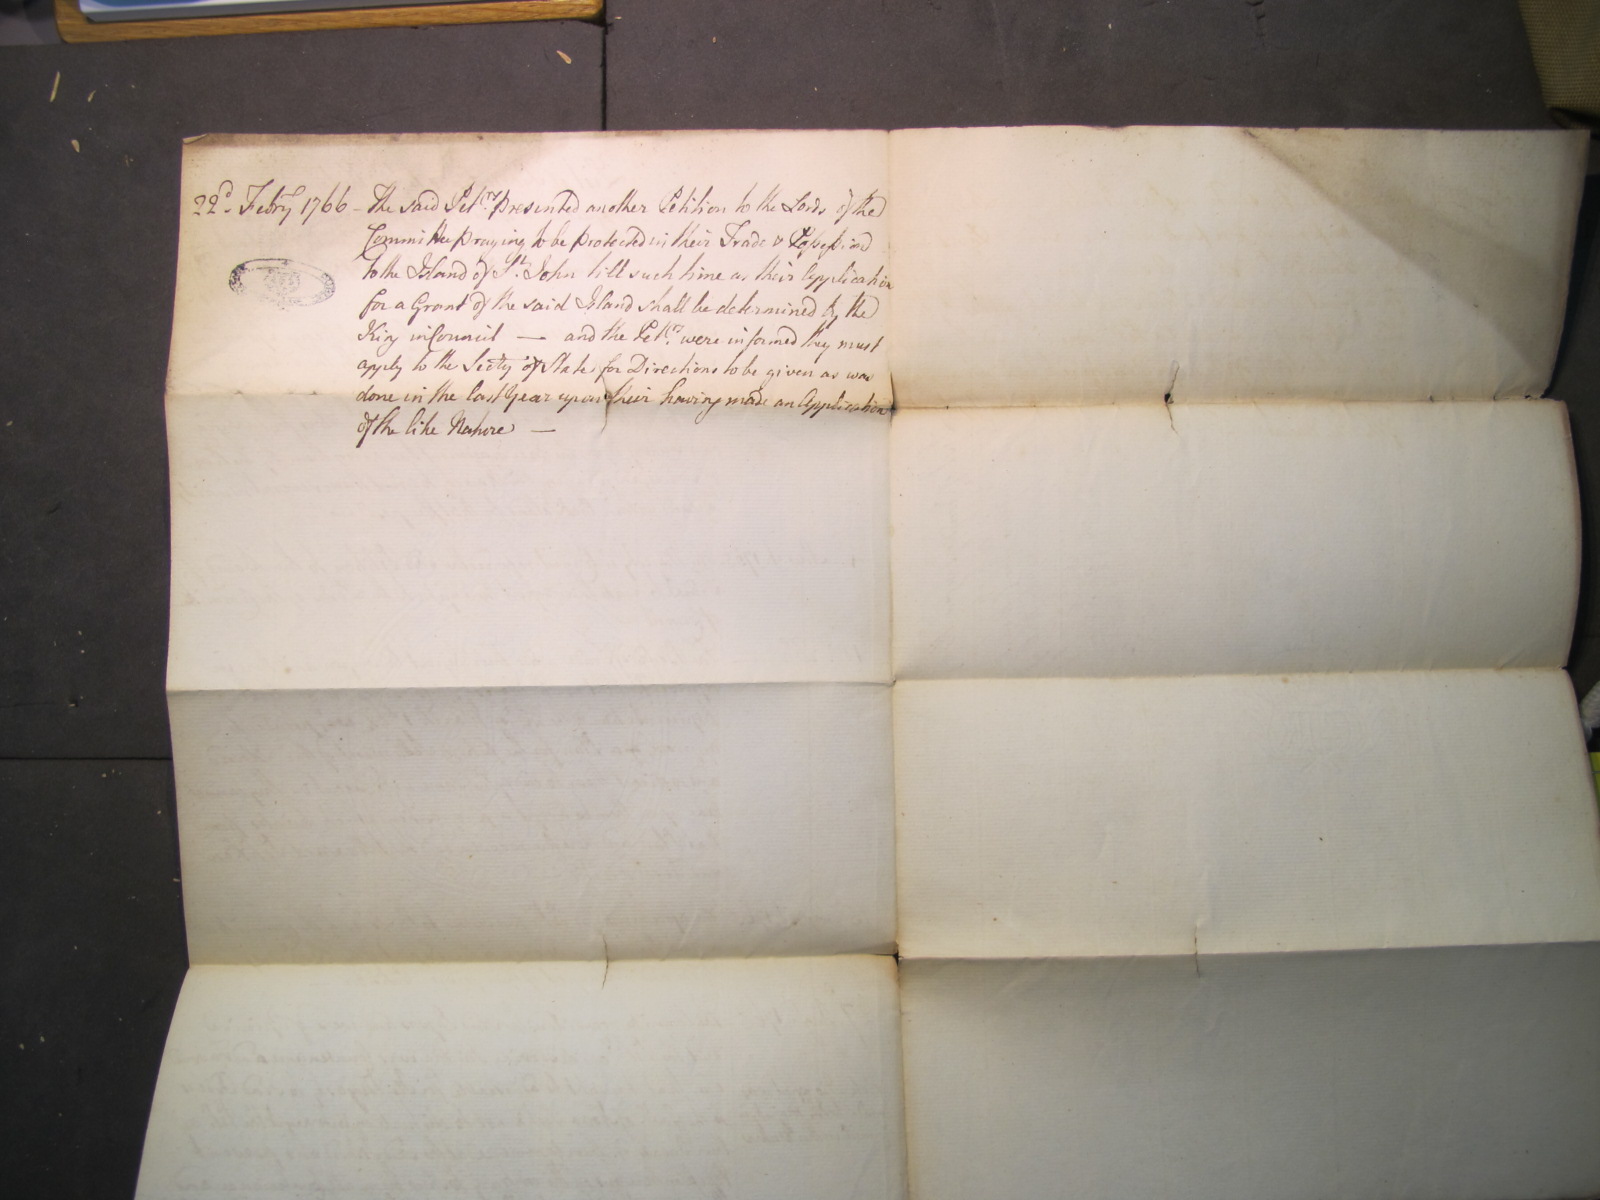 22d. Febry 1766 - The said Petrs. presented another Petition to the Lords of the
Committee praying to be protected in their Trade & Possession
to the Island of St. John till such time as their Application
for a Grant of the said Island shall be determined by the
King in Council — and the Petrs. were informed they must
apply to the Secty of State for Directions to be given as was
done in the last Year upon their having made an Application
of the like Nature —